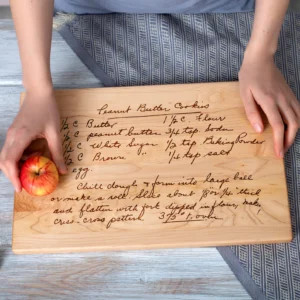 Peanut Butter Cookies
½ C Butter 1½ C Flour
½ C peanut butter ¾ tsp Soda
½ C White Sugar ½ tsp Baking Powder
½ C Brown " ¼ tsp salt
1 egg
Chill dough & form into large ball
or make a roll. Slice about thick
and flatten with fork dipped in flour, make
criss-cross pattern 375° oven